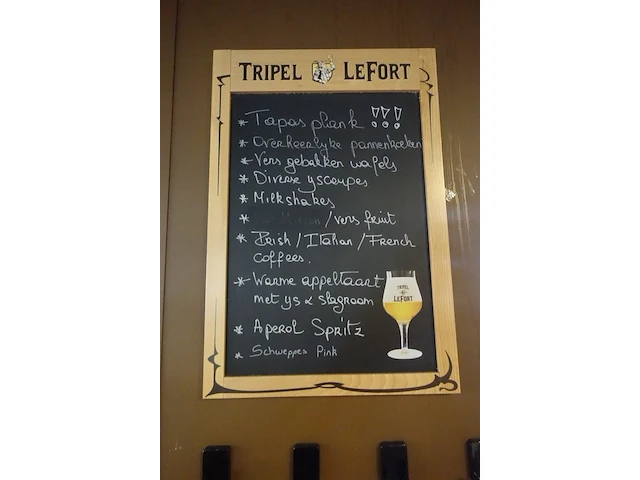 TRIPEL LEFORT
* Tapas plank !!!
* Overheerlyke pannenkoeken
* Vers gebakken wafels
* Diverse yscoupes
* Milkshakes
* / vers fruit
* Irish / Italian / French
coffees.
* Warme appeltaart
met ys & slagroom
* Aperol Spritz
* Schweppes Pink
TRIPEL
LEFORT